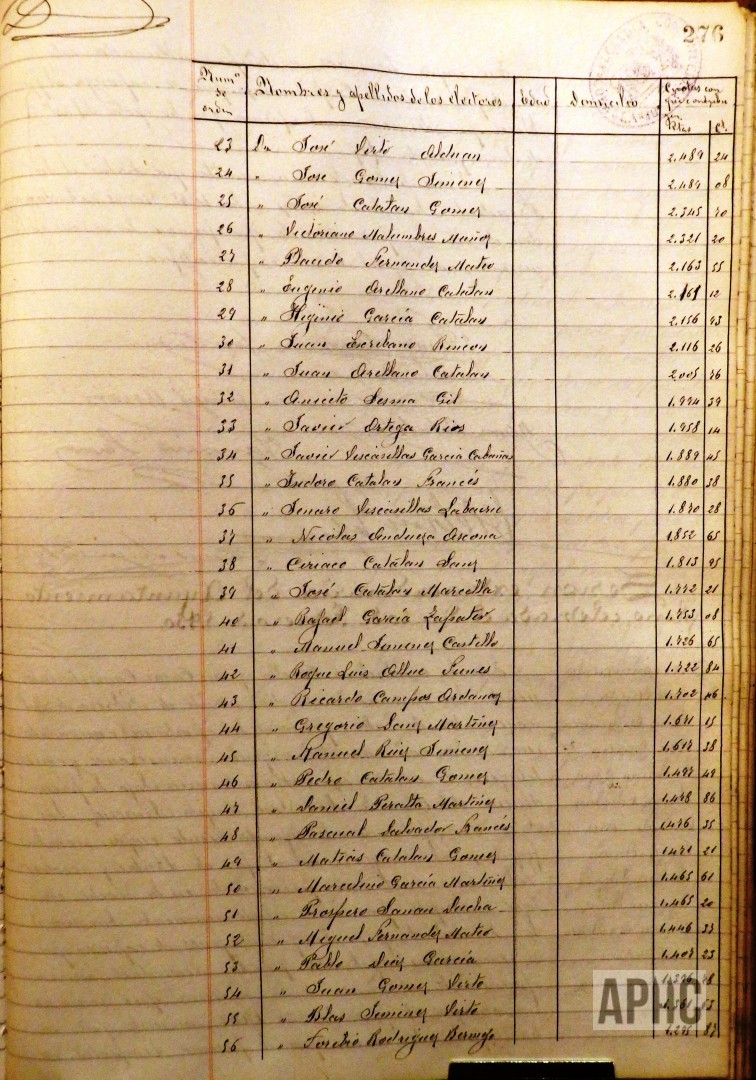 276
Num.º de orden Nombres y apellidos de los electores Edad Domicilio Cuotas con que contribuyen Ptas C.
23 Dn José Virto Alduan 2.489 24
24 " Jose Gomez Jimenez 2.484 08
25 " José Catalan Gomez 2.345 70
26 " Victoriano Malumbres Muñoz 2.321 20
27 " Placido Fernandez Mateo 2.163 55
28 " Eugenio Arellano Catalan 2.161 12
29 " Higinio García Catalan 2.156 93
30 " Juan Escribano Rincon 2.116 26
31 " Juan Arellano Catalan 2.005 76
32 " Aniceto Sesma Gil 1.994 39
33 " Javier Ortega Rios 1.958 14
34 " Javier Viscasillas García Cabañas 1.889 45
35 " Isidoro Catalan Francés 1.880 38
36 " Jenaro Viscasillas 1.870 28
37 " Nicolas Anduega Ascona 1.852 65
38 " Ciriaco Catalan Sanz 1.813 95
39 " José Catalan Marcilla 1.772 21
40 " Rafael García Zapater 1.753 08
41 " Manuel Jimenez Castillo 1.726 65
42 " Roque Luis Allue Funes 1.722 84
43 " Ricardo Campos Ardanaz 1.702 46
44 " Gregorio Sanz Martinez 1.671 15
45 " Manuel Ruiz Jimenez 1.617 38
46 " Pedro Catalan Gomez 1.497 49
47 " Daniel Peralta Martinez 1.478 86
48 " Pascual Salvador Francés 1.476 35
49 " Matias Catalan Gomez 1.471 21
50 " Marcelino García Martinez 1.465 61
51 " Prospero Sanau 1.465 20
52 " Miguel Fernandez Mateo 1.446 33
53 " Pablo Diaz García 1.407 23
54 " Juan Gomez Virto
55 " Blas Jimenez Virto
56 " Toribio Rodriguez 87
APHC